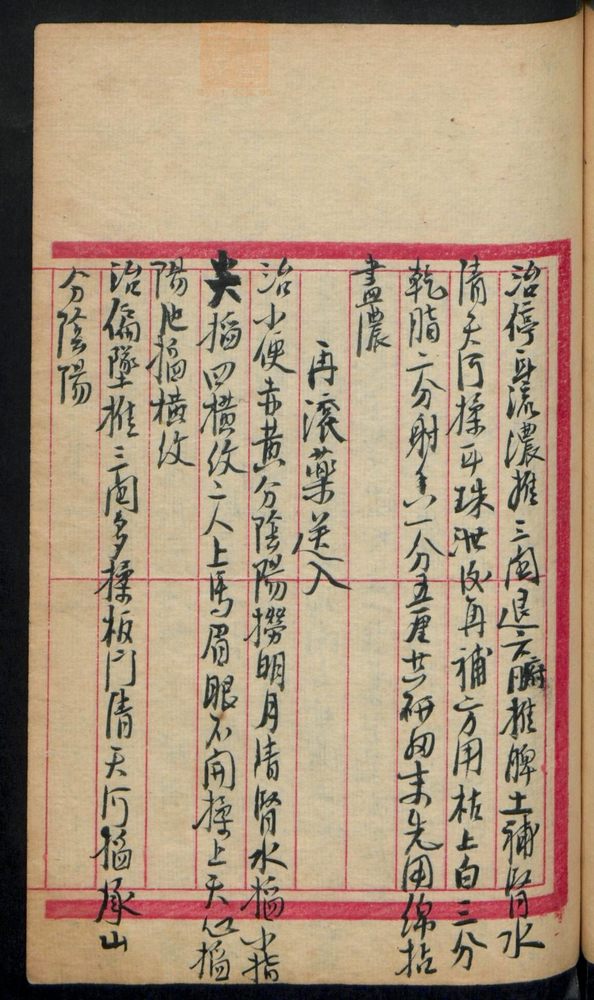 治停耳流濃推三関退六腑推脾土補腎水
清天河揉耳珠泄後再補方用枯上白三分
乾脂二分射香一分五厘共研細末先用绵拈
盡濃
再滚藥送入
治小便赤黄分陰陽撈明月清腎水搯小指
尖搯四横紋二人上馬眉眼不開揉上天心搯
陽池搯横紋
治偏墜推三関多揉板门清天河搯承山
分陰陽